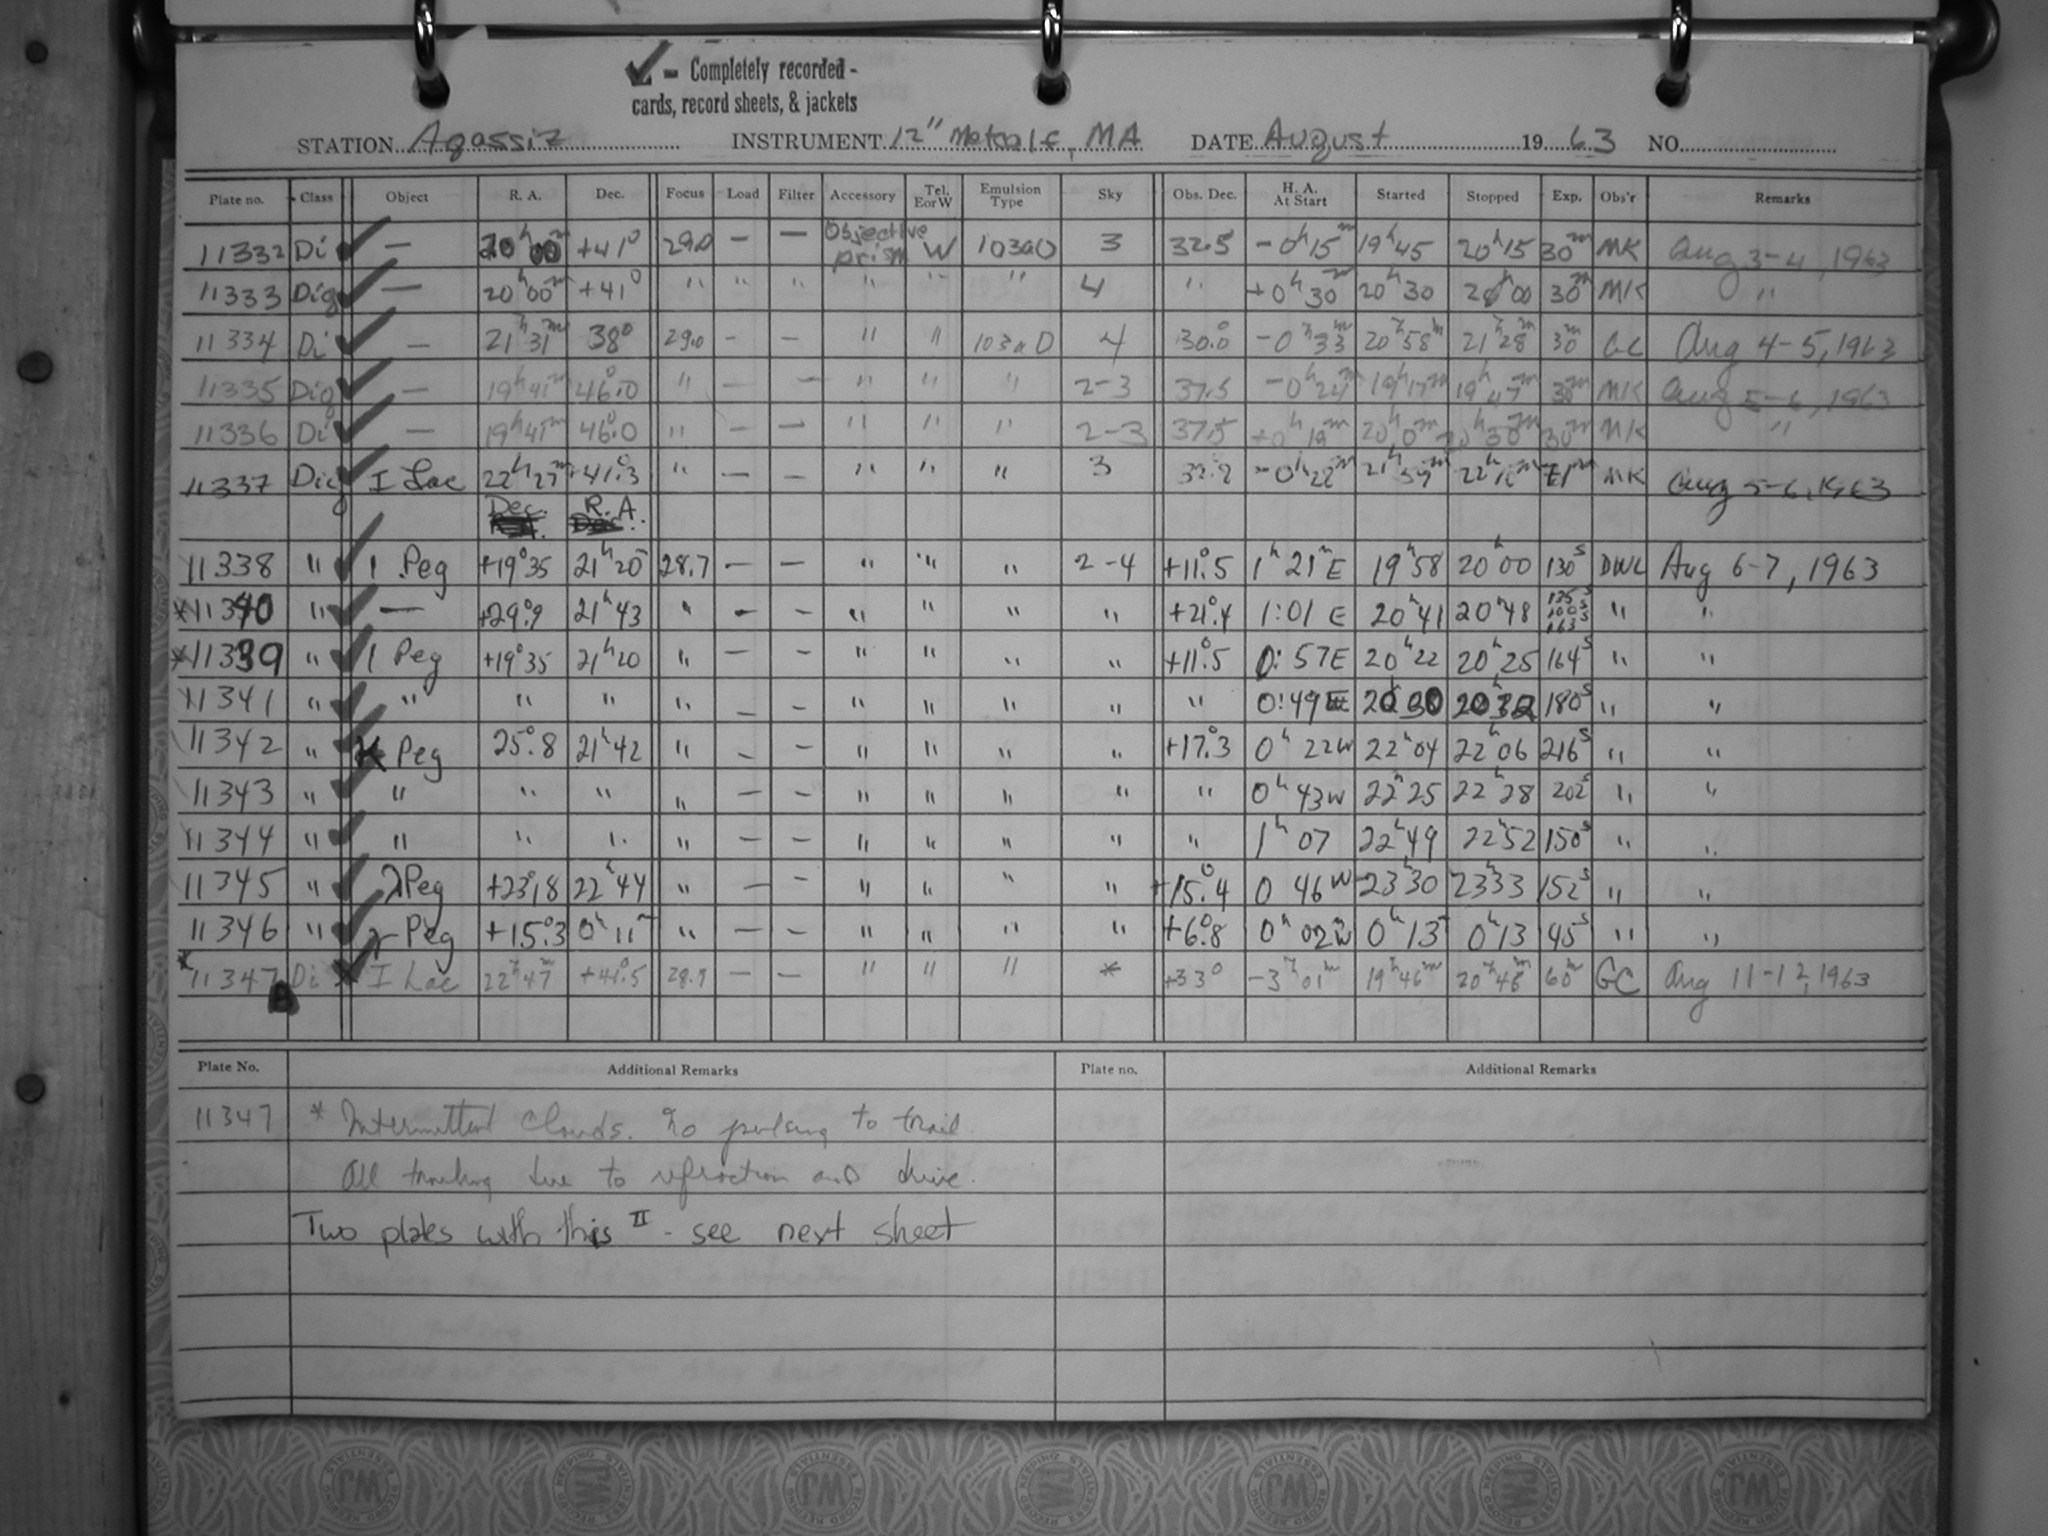 ✓ - Completely recorded -
cards, record sheets, & jackets
STATION Agassiz INSTRUMENT 12" Metcalf, MA DATE August 1963 NO.
Plate no. Class Object R. A. Dec. Focus Load Filter Accessory Tel. E or W Emulsion Type Sky Obs. Dec. H. A. At Start Started Stopped Exp. Obs'r Remarks
11332 Di ✓ — 20h 00m +41° 29.0 — — Objective prism W 103aO 3 32.5 -0h 15m 19h 45 20h 15 30m MK Aug 3-4, 1963
11333 Dig ✓ — 20h 00m +41° " " " " " " 4 " +0h 30m 20h 30 20h 00 30m MK "
11334 Di ✓ — 21h 31m 38° 29.0 - - " " 103aO 4 30.0° -0h 33m 20h 58m 21h 28m 30m GC Aug 4-5, 1963
11335 Dig ✓ — 19h 41m 46.0° " — — " " " 2-3 37.5 -0h 24m 19h 17m 19h 47m 30m MK Aug 5-6, 1963
11336 Di ✓ — 19h 41m 46.0° " — — " " " 2-3 37.5 +0h 19m 20h 0m 20h 30m 30m MK "
11337 Dig ✓ I Lac 22h 27m +41.3° " — — " " " 3 -0h 22m 21h 59m MK Aug 5-6, 1963
Dec. R. A.
11338 " ✓ 1 Peg +19°35 21h 20 28.7 — — " " " 2-4 +11°.5 1h 21m E 19h 58 20h 00 130s DWL Aug 6-7, 1963
*11340 " ✓ — +29°.9 21h 43 " — — " " " " +21°.4 1:01 E 20h 41 20h 48 163s " "
*11339 " ✓ 1 Peg +19°35 21h 20 " — — " " " " +11°.5 0:57 E 20h 22 20h 25 164s " "
11341 " ✓ " " " " — — " " " " " 0:49 E 20h 30 20h 32 180s " "
11342 " ✓ Peg 25°.8 21h 42 " — — " " " " +17°.3 0h 22W 22h 04 22h 06 216s " "
11343 " ✓ " " " " — — " " " " " 0h 43W 22h 25 22h 28 202s " "
11344 " ✓ " " " " — — " " " " " 1h 07 22h 49 22h 52 150s " "
11345 " ✓ λ Peg +23°.8 22h 44 " — — " " " " +15°.4 0 46W 23h 30 23h 33 152s " "
11346 " ✓ γ Peg +15°.3 0h 11m " — — " " " " +6°.8 0h 02W 0h 13 0h 13 45s " "
*11347 Di I Lac 22h 47m +41°.5 28.7 — — " " " * +33° -3h 01m 19h 46m 20h 46m 60m GC Aug 11-12, 1963
Plate No. Additional Remarks Plate no. Additional Remarks
11347 * Intermittent clouds. No pulsing to trail.
All tracking due to refraction and drive.
Two plates with this II - see next sheet